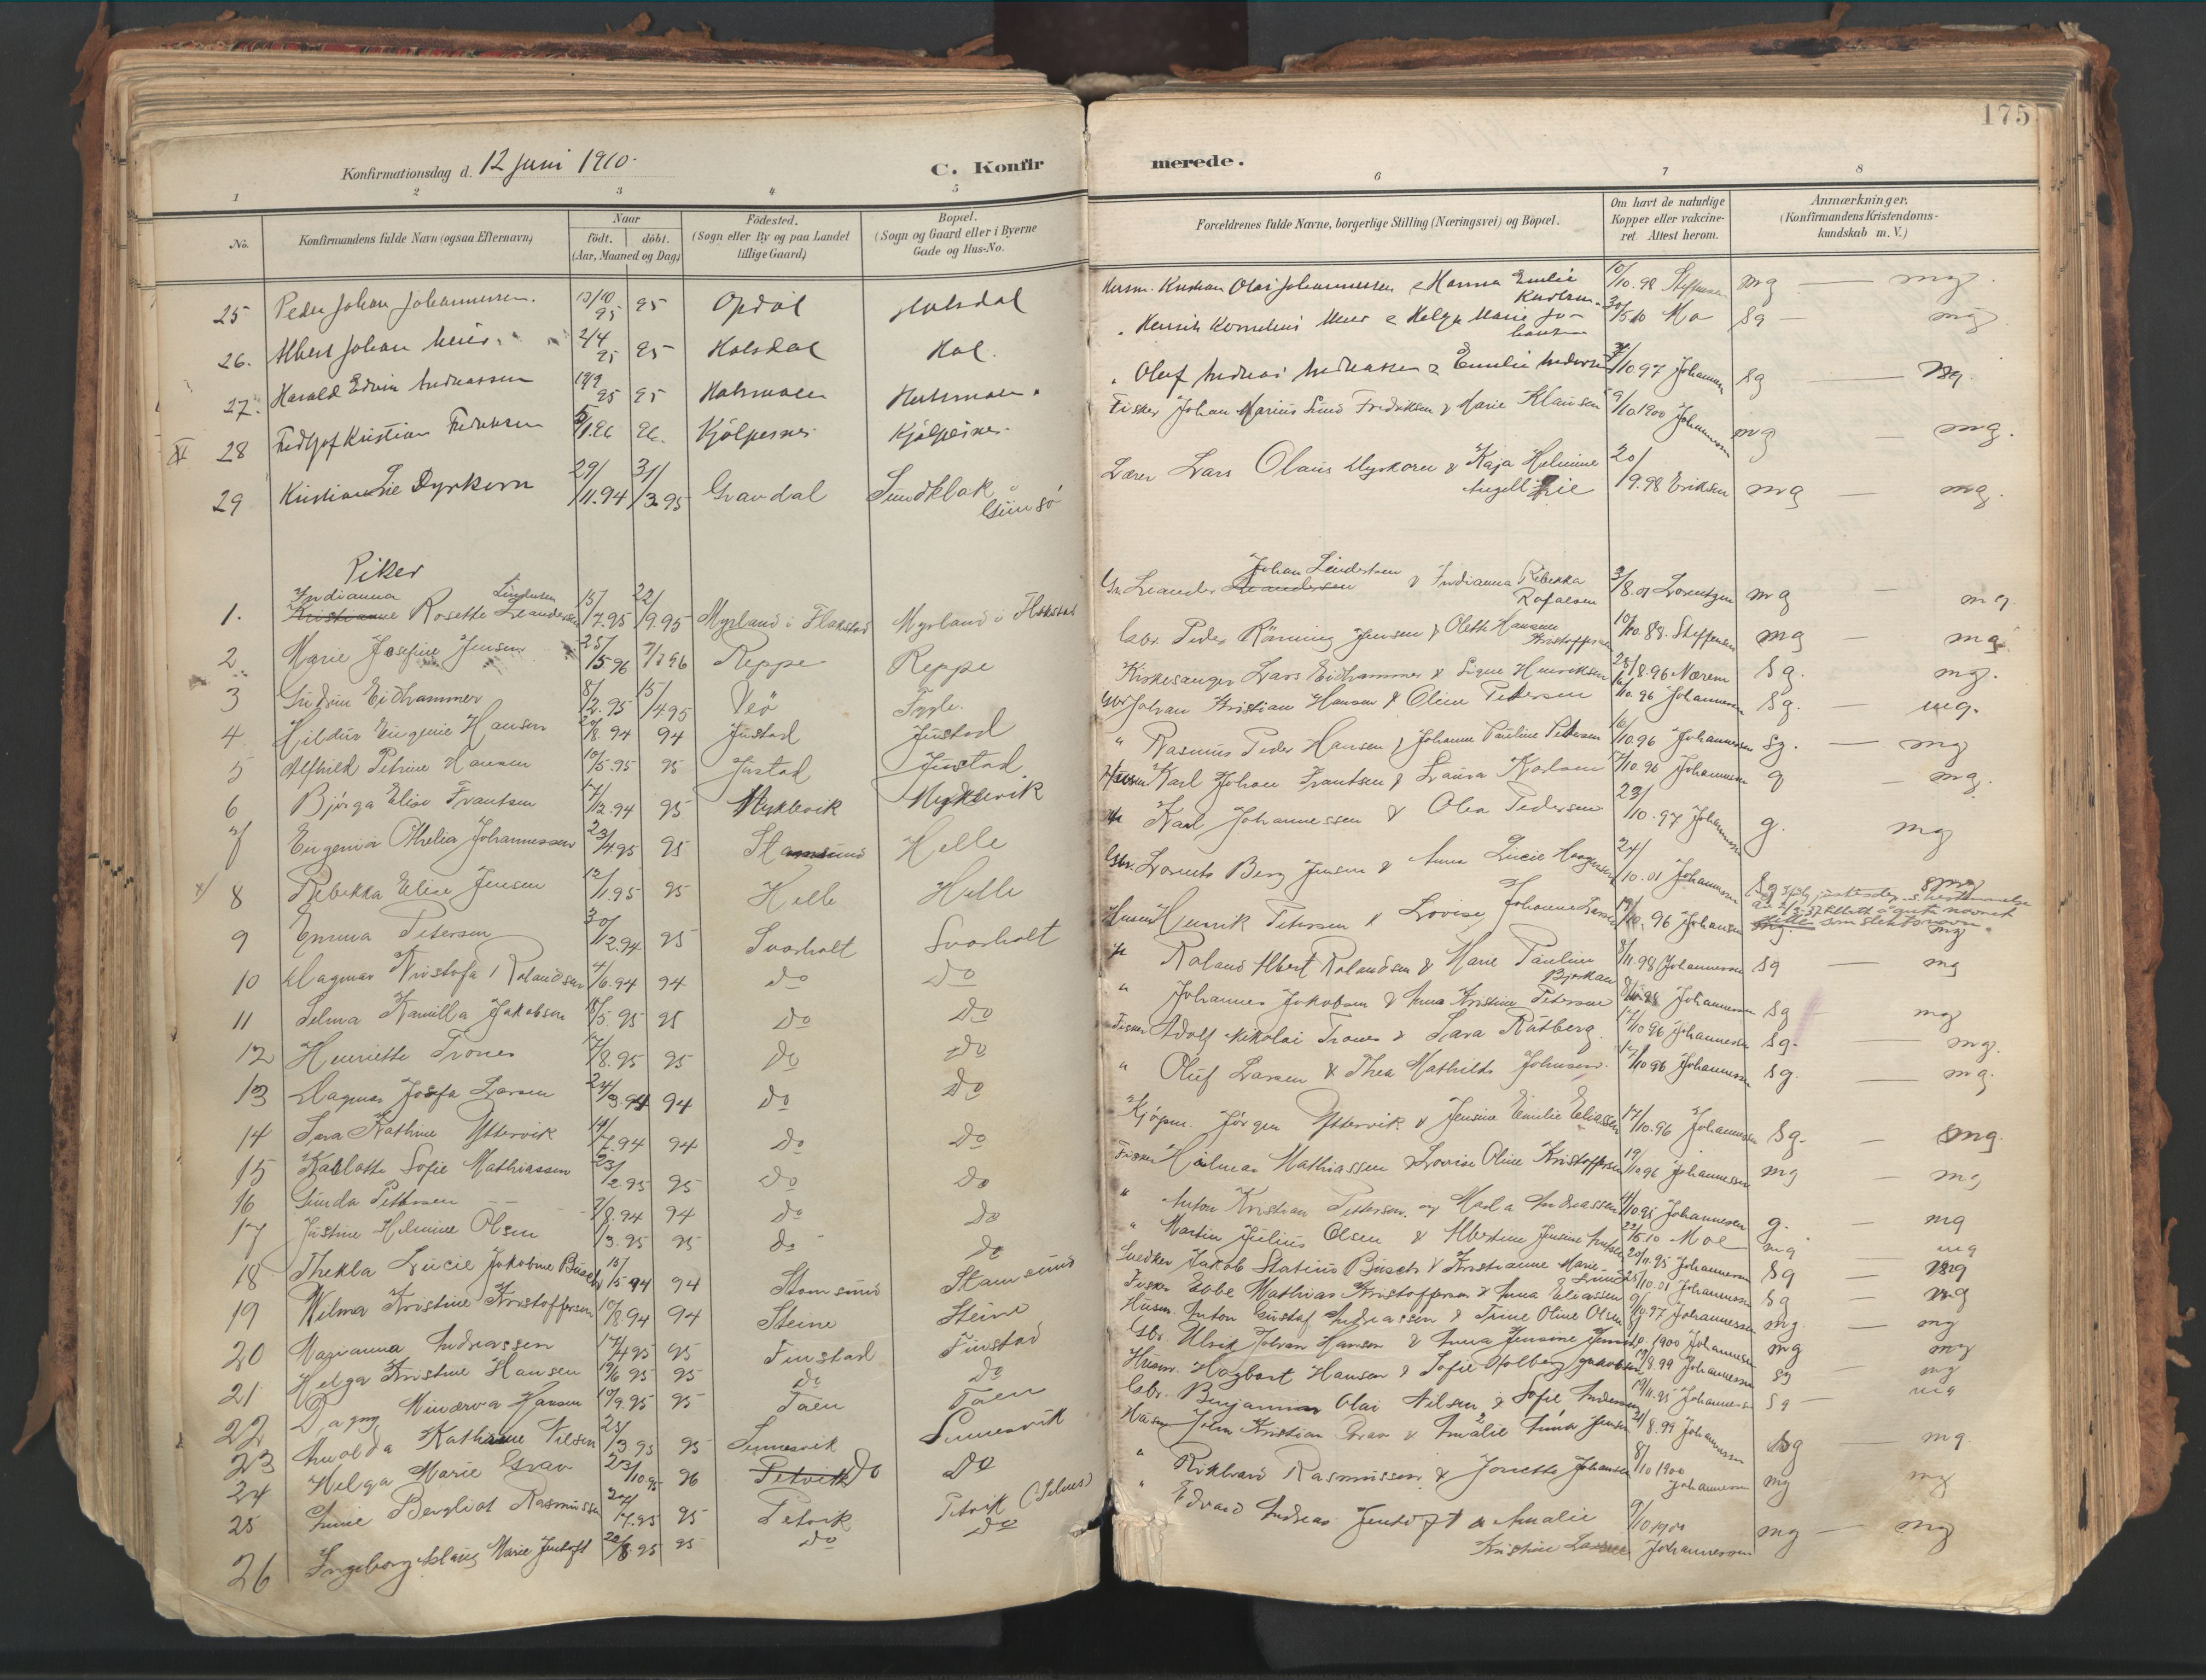 175
Konfirmationsdag d. 12 Juni 1910.
C. Konfirmerede.
1 2 3 4 5 6 7 8
No.
Konfirmandens fulde Navn (ogsaa Efternavn)
Naar
födt. döbt.
(Aar, Maaned og Dag)
Födested.
(Sogn eller By og paa Landet
tillige Gaard)
Bopæl.
(Sogn og Gaard eller i Byerne
Gade og Hus-No.
Forældrenes fulde Navne, borgerlige Stilling (Næringsvei) og Bopæl.
Om havt de naturlige
Kopper eller vakcine-
ret. Attest herom.
Anmærkninger.
(Konfirmandens Kristendoms-
kundskab m. V.)
25 Peder Johan Johannessen. 95 Opdöl Holsdal Kristian Olai Johannessen & Hanna Emilie 10/10.98 Steffensen mg — mg
26. Albert Johan Meier 2/4 95 95 Holsdal Hol. Henrik Kornelius Meier & Helga Marie 30/5.10 Mo Sg — mg
27. Harald Edvin Andreassen 95 95 Holsmoen Holsmoen. Olaf Andreas Andreassen & Emilie 10.97 Johannesen Sg — mg
28 Kristian Fredriksen 96 Kjölpesnes Kjölpesnes Fisker Johan Marius Fredriksen & Marie Klausen 9/10 1900 Johannessen mg — mg.
29 Kristian Lie Dyrkorn 29/11.94 31/3.95 Gravdal Sundklak Gimsö Lærer Lars Olaus Dyrkorn & Kaja Helmine Angell Lie 20/9.98 Eriksen mg — mg.
Piker
1. Indianna Kristianne Rosette Leandersen Lindersen 15/7.95 22/9.95 Myrland i Flakstad Myrland i Flakstad Gbr. Leander Leandersen Johan & Indianna Rebekka Rafaelsen 3/8.01 Lorentzen mg — mg
2 Marie Josefine Jensen 25/5 96 7/7 96 Reppe Reppe Gbr. Peder Rönning Jensen & Olette Hansine Kristoffersen Steffensen mg — mg
3 Gudrun Eidhammer 8/2.95 15/4 95 Veö Kirkesanger Lars Eidhammer & Signe Henriksen 25/8.96 Nærem Sg. mg.
4 Hildur Eugenie Hansen 94 94 Justad Justad Gbr Johan Kristian Hansen & Oline Petersen 16/10.96 Johannesen Sg. — mg.
5 Alfhild Petrine Hansen 10/5.95 95 Justad Justad " Rasmus Peder Hansen & Johanne Pauline Petersen 16/10.96 Johannesen Sg. — mg
6 Björga Elise Frantsen 17/12.94 95 Myklevik Myklevik Husm Karl Johan Frantsen & Laura Karlsen 17/10 96 Johannesen g — mg.
7 Eugenia Othelia Johannessen 23/4.95 95 Stamsund Helle Karl Johannessen & Olea Pedersen 23/10.97 Johannesen g. mg
8 Rebekka Elise Jensen 12/1.95 95 Helle Helle Gbr. Lorents Berg Jensen & Anna Lucie 24/10.01 Johannesen Sg mg
9 Emma Petersen 30/12.94 95 Svarholt Svarholt Husm Henrik Petersen & Lovise Johanne Larsen 19/10.96 Johansen mg. mg
som slektsnavn.
10 Dagmar Kristofa Rolandsen 4/6.94 94 do do Roland Albert Rolandsen & Marie Pauline 8/11.98 Johannessen Sg — mg
11 Selma Kamilla Jakobsen 18/5.95 95 do do " Johannes Jakobsen & Anna Kristine Petersen Johannessen Sg mg
12 Henriette Trones 17/8.95 95 do do Fisker Adolf Nikolai Trones & Sara Rutberg 17/10 96 Johannesen Sg. — mg.
13 Dagmar Josefa Larsen 24/3.94 94 do do " Oluf Larsen & Thea Mathilde Johnsen. 17/10 96 Johannesen Sg. — mg
14 Sara Kathrine Yttervik 14/7.94 94 do do Kjöpm. Jörgen Yttervik & Jensine Emilie Eliassen 17/10.96 Johannesen Sg. — mg.
15 Karlotte Sofie Mathiassen 23/2.95 95 do do Fisker Hilmar Mathiassen & Lovise Oline Kristoffersen 19/10 96 Johannesen mg — mg
16 Gunda Pettersen 7/8.94 94 do do " Anton Kristian Pettersen og Marla Andreassen Johannessen g. — mg
17 Justine Helmine Olsen 3.95 95 do do " Martin Julius Olsen & Albertine Jensine 22/5.10 Moe mg mg
18 Thekla Lucie Jakobine Busch 15/5 94 94 Stamsund Stamsund Snedker Jakob Statius Busch & Kristianne Marie 20/11.95 Johannesen Sg — mg
19 Wilma Kristine Kristoffersen 10/8.94 94 Steine Steine Fisker Ebbe Mathias Kristoffersen & Anna Eliassen 10.01 Johannessen Sg — mg
20 Marianna Andreassen 17/4 95 95 Finstad Finstad Husm. Anton Gustaf Andreassen & Trine Oline Olsen 10.97 Johannessen mg — mg
21 Helga Kristine Hansen 19/6 95 95 do do Gbr. Ulrik Johan Hansen & Anna Jensine 10.1900 Johannesen mg mg
22 Dagny Minærva Hansen 10/9.95 95 Taen Taen Husm. Hagbart Hansen & Sofie 8.99 Johannessen Sg mg
23 Arnolda Kathrine Nilsen 25/3 95 95 Sennesvik Sennesvik Gbr. Benjamin Olai Nilsen & Sofie 19/11.95 Johannesen Sg — mg
24 Helga Marie Grav 23/10.95 96 Petvik do do Husm John Kristian Grav & Amalie Anna Jensen 21/8.99 Johannesen Sg — mg.
25 Anne Bergliot Rasmussen 7.95 95 Petvik Petvik " Rikhard Rasmussen & Jonette Johansen 8/10 1900 Johannesen mg mg
26 Ingeborg Marie Jentoft 8.95 95 do do " Edvard Andreas Jentoft & Amalie Kristine Larsen 9/10 1900 Johannessen mg — mg